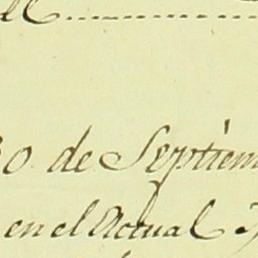 ll
30 de Septiem
en el Actual